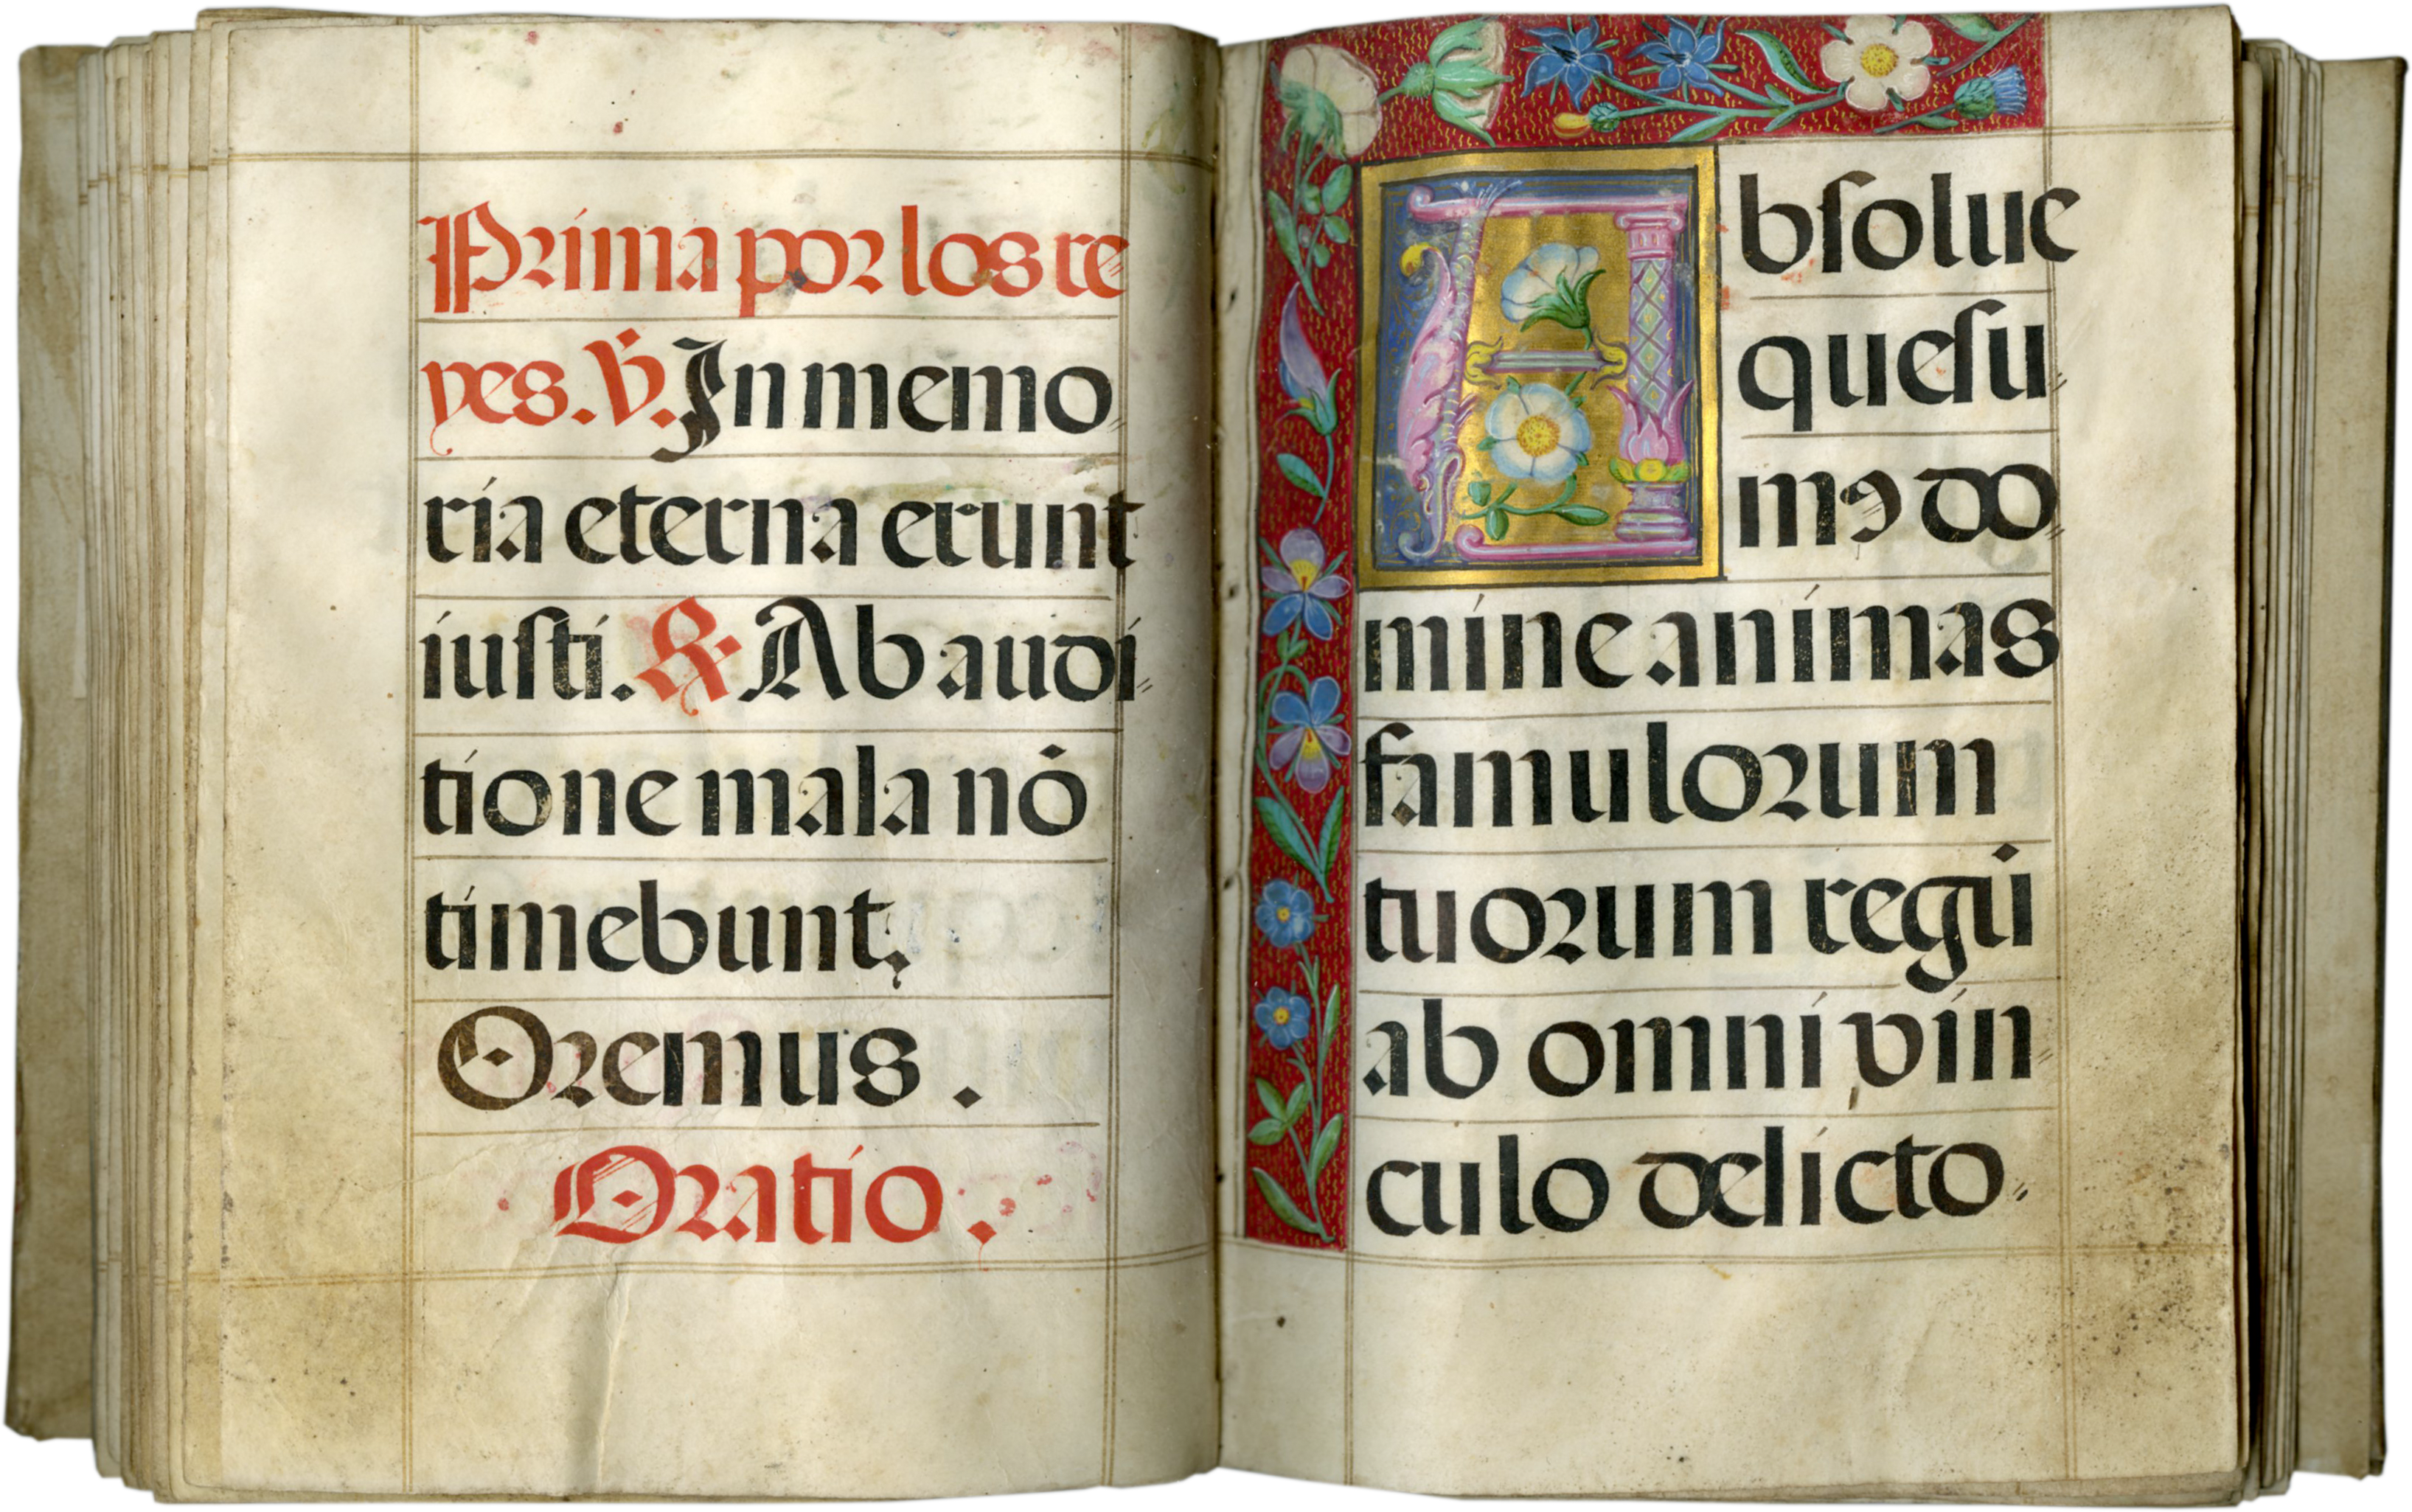 Prima por los re
yes. V̇. In memo
ria eterna erunt
iusti. ℟ Ab audi
tione mala nō
timebunt.
Oremus.
Oratio.
Absolue
quesu
mꝯ do
mine animas
famulorum
tuorum regū
ab omni vin
culo delicto